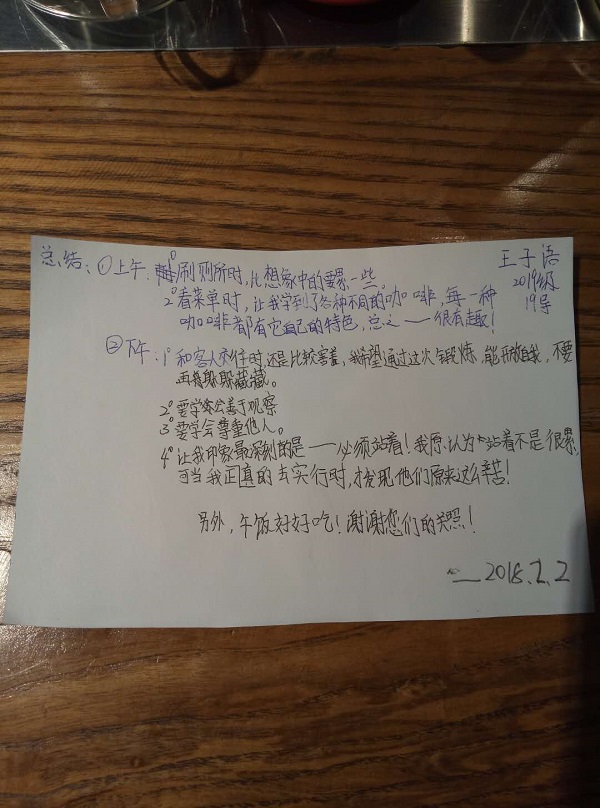 总结：①上午：1°刷厕所时，比想象中的要累一些。
王子语
2019级
19号
2°看菜单时，让我学到了各种不同的咖啡，每一种
咖啡都有它自己的特色，总之——很有趣！
②下午：1°和客人交付时还是比较害羞，我希望通过这次锻炼，能开放自我，不要
再躲躲藏藏。
2°要学会善于观察
3°要学会尊重他人。
4°让我印象最深刻的是——必须站着！我原以为站着不是很累，
可当我正真的去实行时，才发现他们原来这么辛苦！
另外，午饭好好吃！谢谢您们的关照！
——2018.2.2